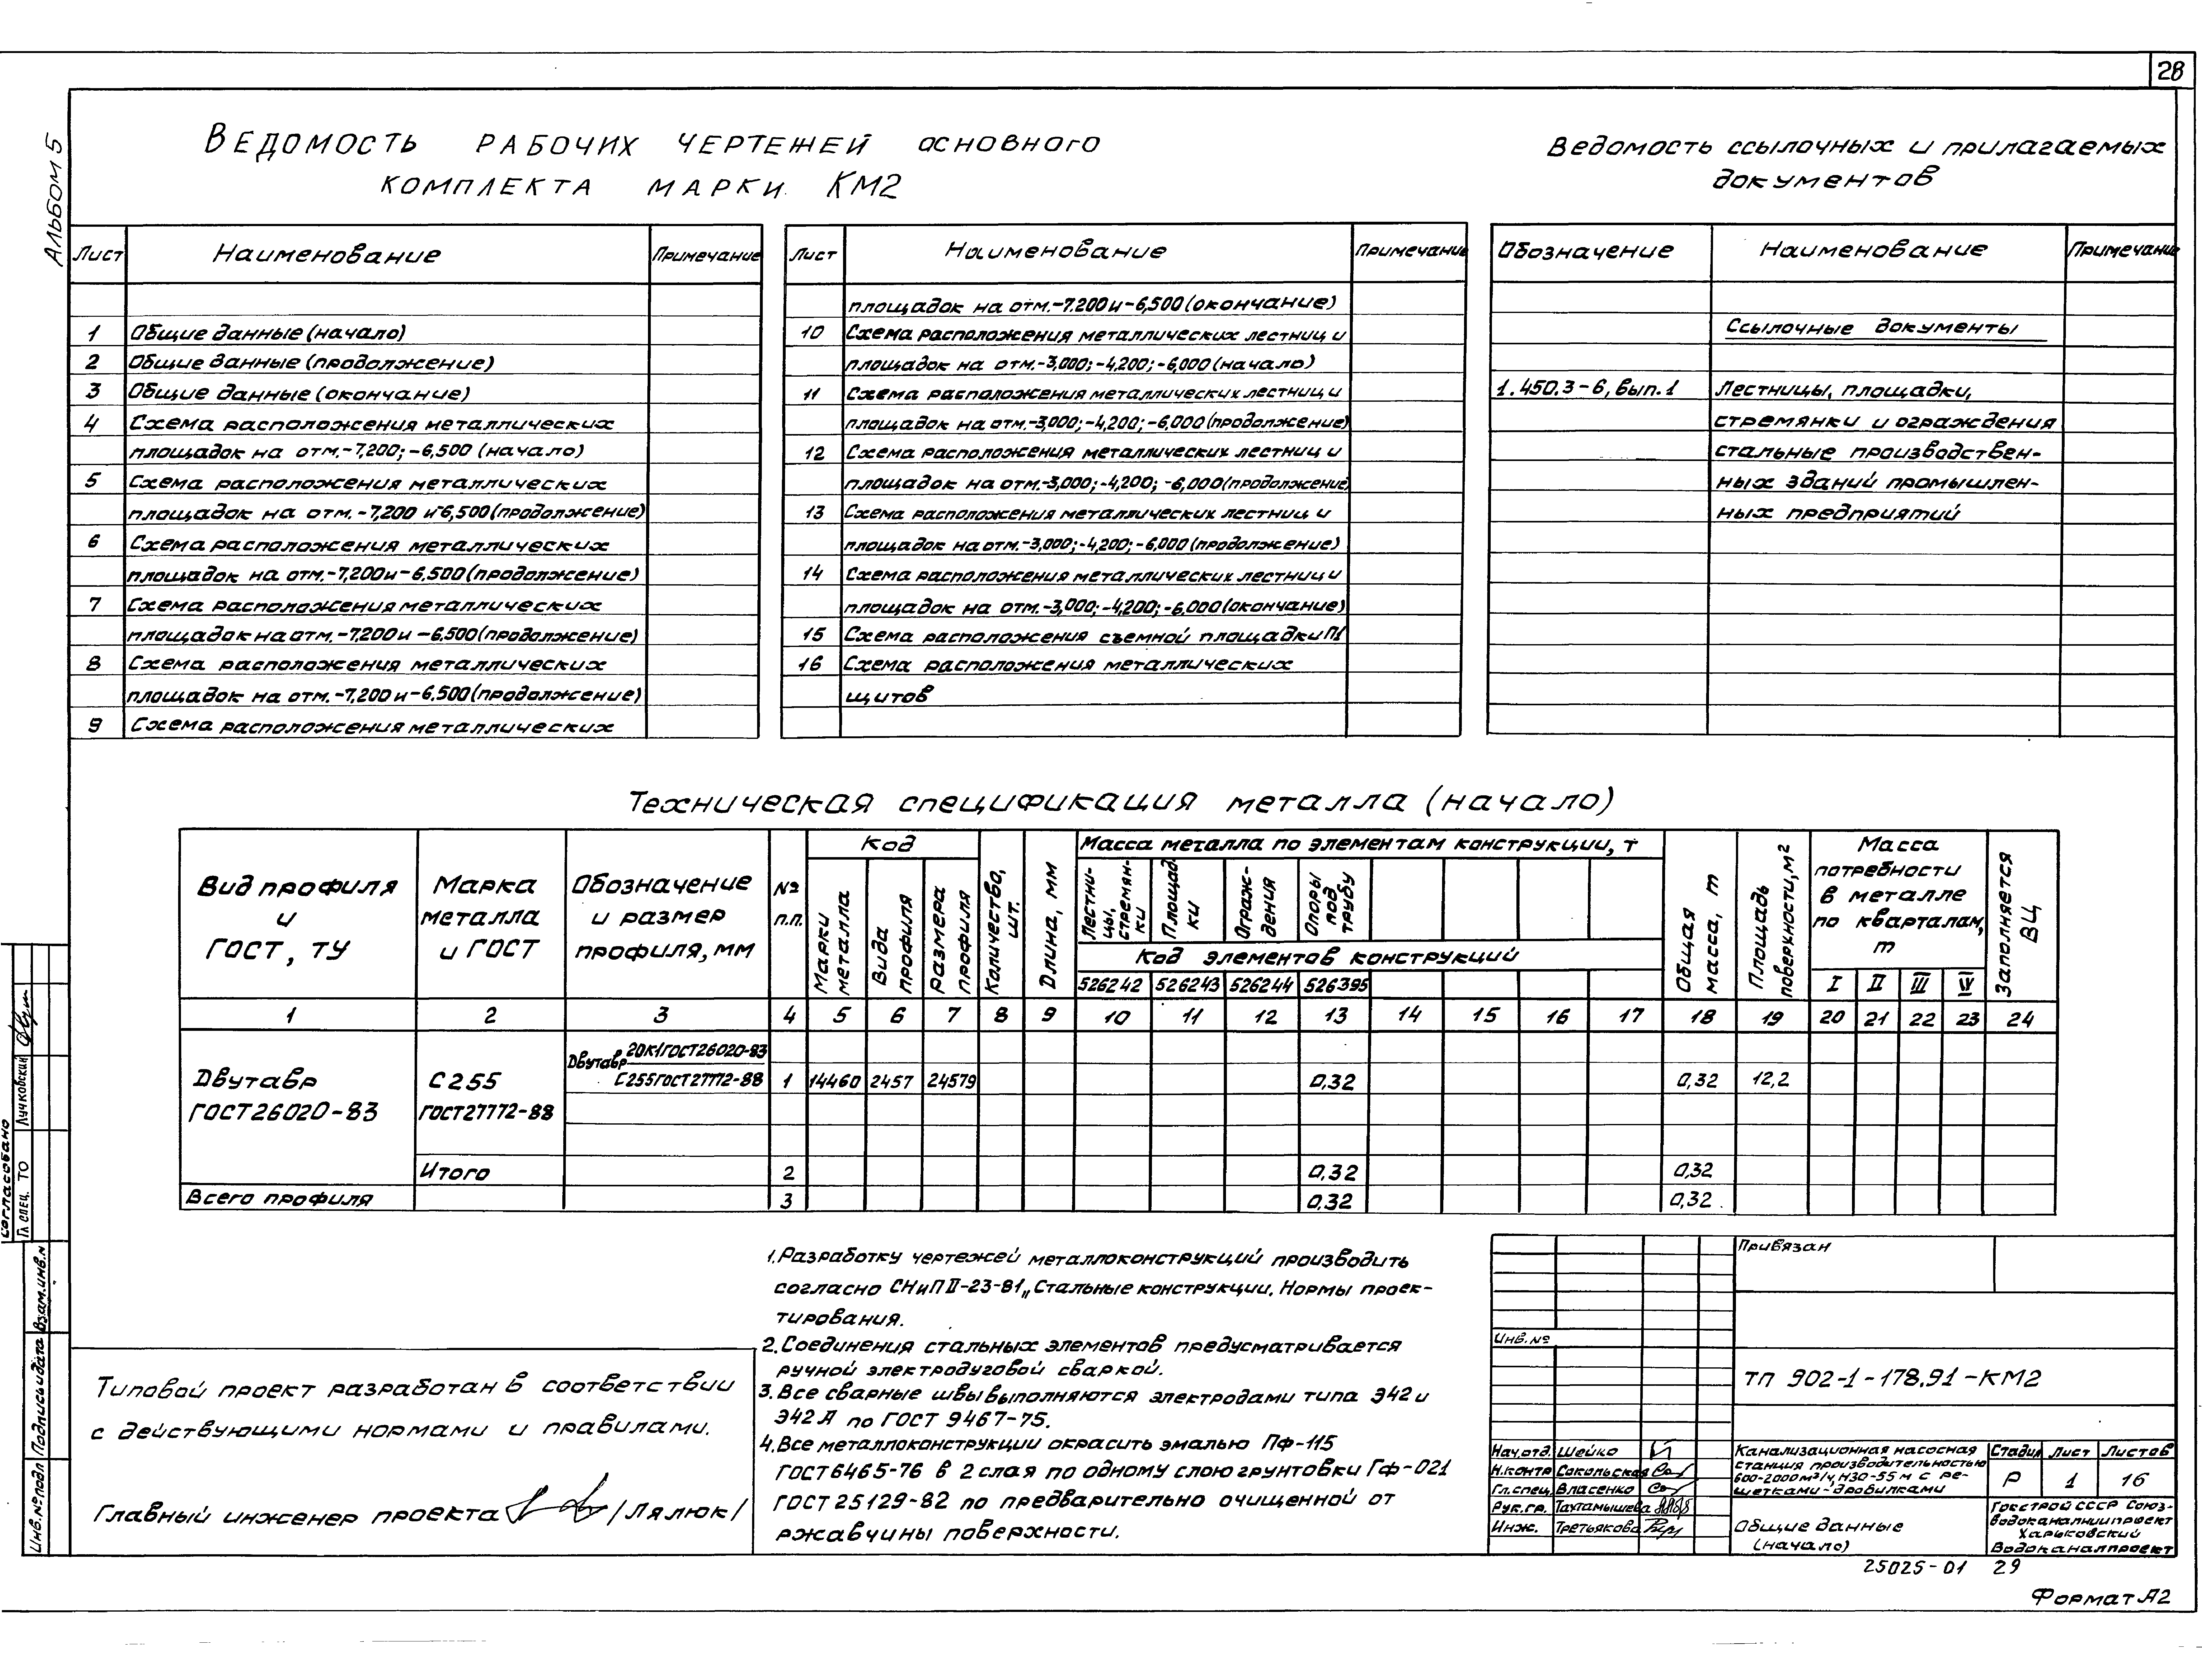 28
Альбом 5
Ведомость рабочих чертежей основного
комплекта марки КМ2
Лист Наименование Примечание
1 Общие данные (начало)
2 Общие данные (продолжение)
3 Общие данные (окончание)
4 Схема расположения металлических
площадок на отм.-7,200; -6,500 (начало)
5 Схема расположения металлических
площадок на отм.-7,200 и -6,500 (продолжение)
6 Схема расположения металлических
площадок на отм.-7,200 и -6,500 (продолжение)
7 Схема расположения металлических
площадок на отм.-7,200 и -6,500 (продолжение)
8 Схема расположения металлических
площадок на отм.-7,200 и -6,500 (продолжение)
9 Схема расположения металлических
Лист Наименование Примечание
площадок на отм.-7.200 и -6,500 (окончание)
10 Схема расположения металлических лестниц и
площадок на отм-3,000; -4,200; -6,000 (начало)
11 Схема расположения металлических лестниц и
площадок на отм.-3,000; -4,200; -6,000 (продолжение)
12 Схема расположения металлических лестниц и
площадок на отм.-3,000; -4,200; -6,000 (продолжение)
13 Схема расположения металлических лестниц и
площадок на отм.-3,000; -4,200; -6,000 (продолжение)
14 Схема расположения металлических лестниц и
площадок на отм.-3,000; -4,200; -6,000 (окончание)
15 Схема расположения съемной площадки П1
16 Схема расположения металлических
щитов
Ведомость ссылочных и прилагаемых
документов
Обозначение Наименование Примечание
Ссылочные документы
1.450.3-6, вып.1 Лестницы, площадки,
стремянки и ограждения
стальные производствен-
ных зданий промышлен-
ных предприятий
Техническая спецификация металла (начало)
Вид профиля
и
ГОСТ, ТУ
Марка
металла
и ГОСТ
Обозначение
и размер
профиля, мм
№
п.п.
Код
Марки
металла
Вида
профиля
Размера
профиля
Количество,
шт.
Длина, мм
Масса металла по элементам конструкции, т
Лестни-
цы,
стремян-
ки
Площад
ки
Ограж-
дения
Опоры
под
трубу
Код элементов конструкций
526242 526243 526244 526395
Общая
масса, т
Площадь
поверхности, м²
Масса
потребности
в металле
по кварталам,
т
I II III IV
Заполняется
ВЦ
1 2 3 4 5 6 7 8 9 10 11 12 13 14 15 16 17 18 19 20 21 22 23 24
Двутавр 20К1ГОСТ26020-83
Двутавр С255 С255ГОСТ27772-88 1 14460 2457 24579 0,32 0,32 12,2
ГОСТ26020-83 ГОСТ27772-88
Итого 2 0,32 0,32
Всего профиля 3 0,32 0,32
1. Разработку чертежей металлоконструкций производить
согласно СНиП II-23-81 „Стальные конструкции. Нормы проек-
тирования.
2. Соединения стальных элементов предусматривается
ручной электродуговой сваркой.
3. Все сварные швы выполняются электродами типа Э42 и
Э42А по ГОСТ 9467-75.
4. Все металлоконструкции окрасить эмалью Пф-115
ГОСТ 6465-76 в 2 слоя по одному слою грунтовки Гф-021
ГОСТ 25129-82 по предварительно очищенной от
ржавчины поверхности.
Типовой проект разработан в соответствии
с действующими нормами и правилами.
Главный инженер проекта /Лялюк/
Согласовано
Гл. спец. ТО Лучковский
Инв.№ подл Подпись и дата Взам.инв.н
Привязан
Инв.№
ТП 902-1-178.91-КМ2
Нач.отд. Шейко
Н.контр Сокольская
Гл.спец. Власенко
Рук.гр. Тахтамышева
Инж. Третьякова
Канализационная насосная
станция производительностью
600-2000м³/ч, Н30-55м с ре-
шетками-дробилками
Стадия Лист Листов
Р 1 16
Общие данные
(начало)
Госстрой СССР Союз-
водоканалниипроект
Харьковский
Водоканалпроект
25025-01 29
Формат А2